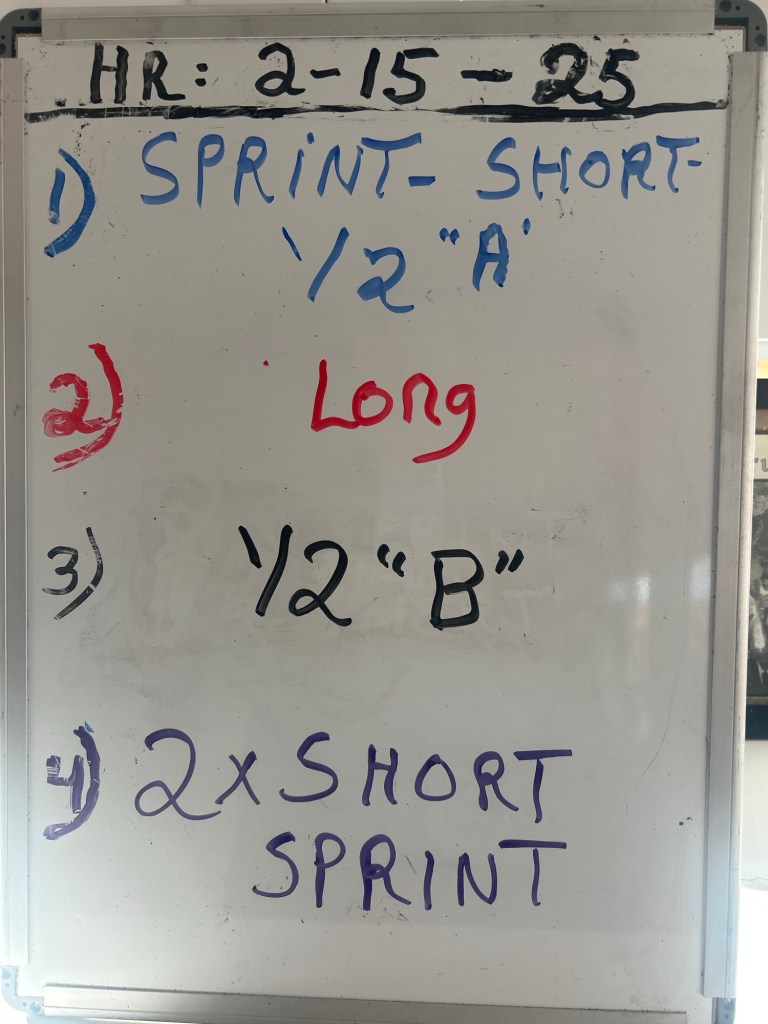 HR: 2-15-25
1) SPRINT- SHORT-
1/2 "A'
2) Long
3) 1/2 "B"
4) 2x SHORT
SPRINT